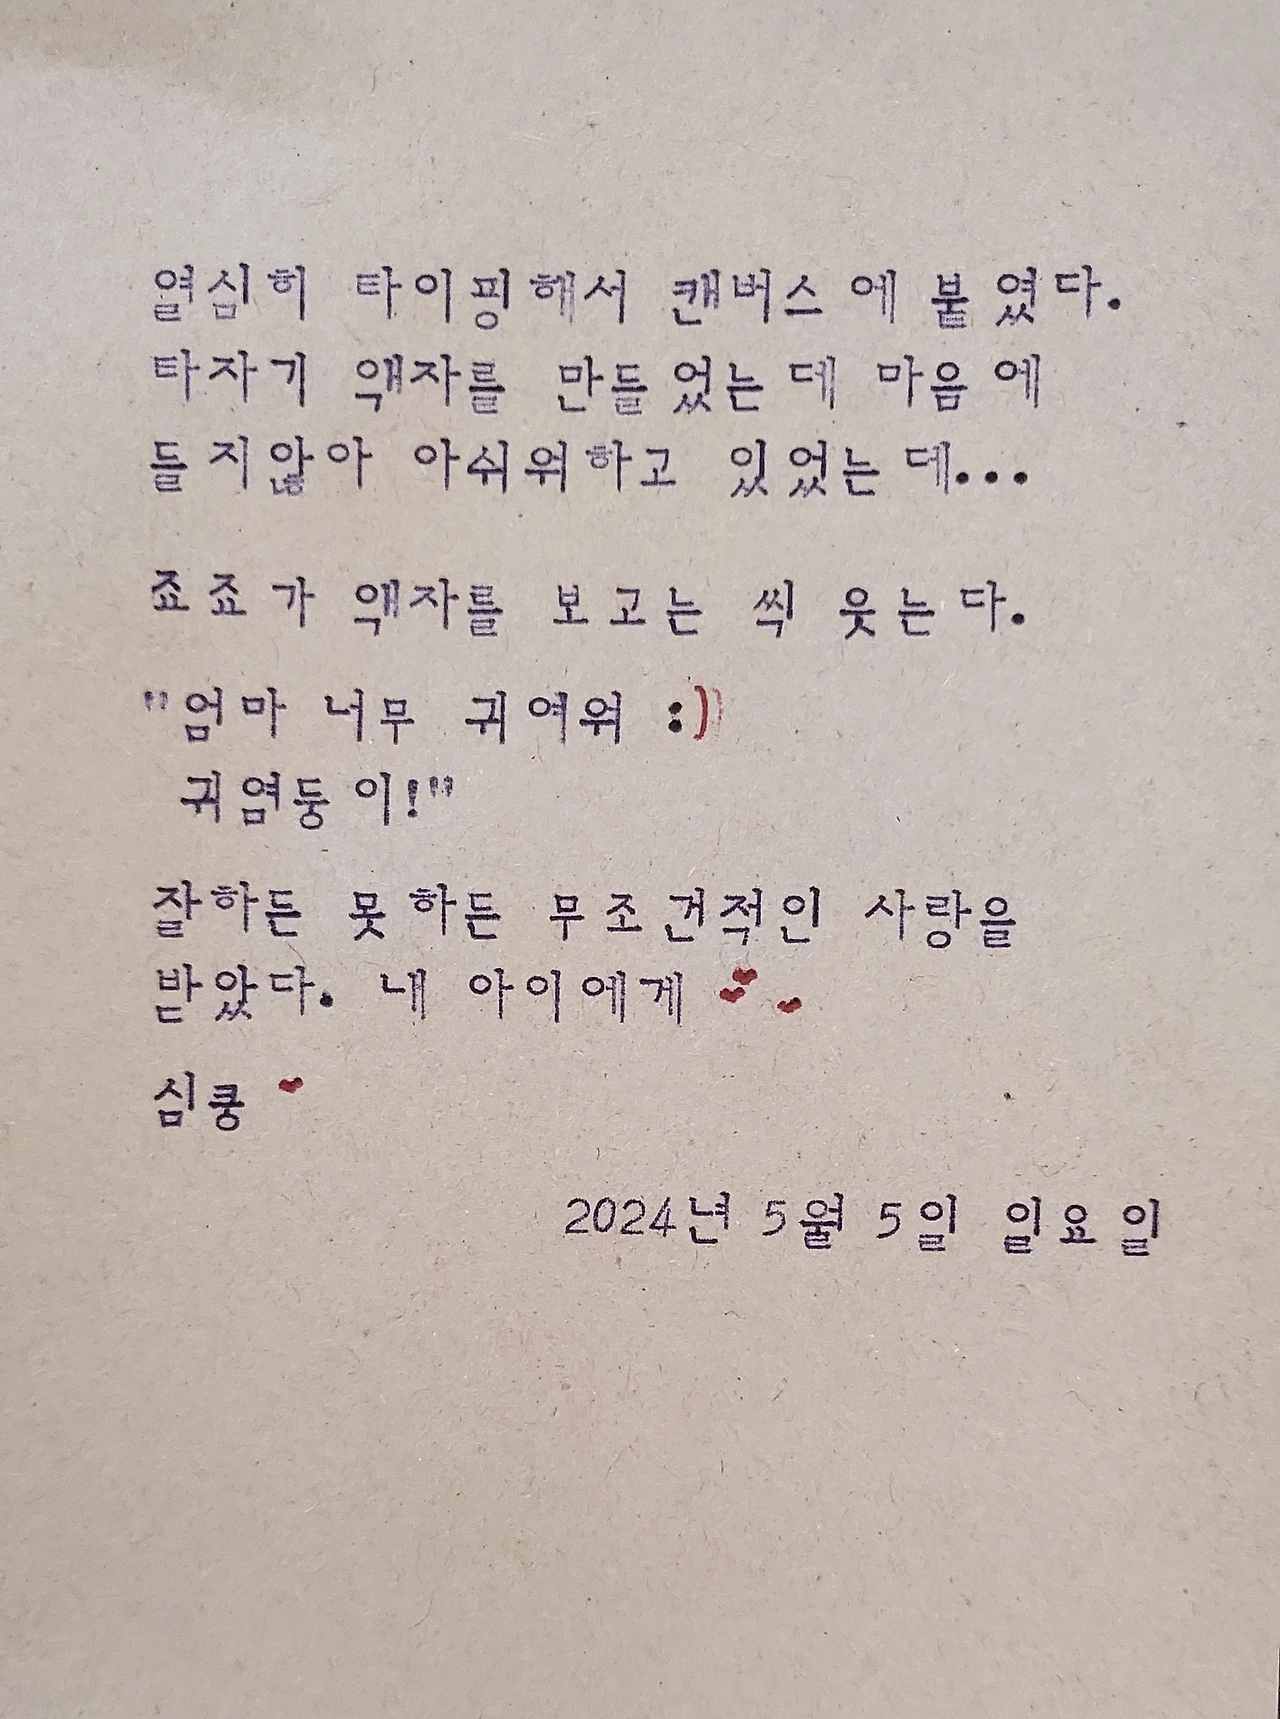 열심히 타이핑해서 캔버스에 붙였다.
타자기 액자를 만들었는데 마음에
들지않아 아쉬워하고 있었는데...
죠죠가 액자를 보고는 씩 웃는다.
"엄마 너무 귀여워 :))
귀염둥이!"
잘하든 못하든 무조건적인 사랑을
받았다. 내 아이에게 ❤❤ ❤
심쿵 ❤
2024년 5월 5일 일요일